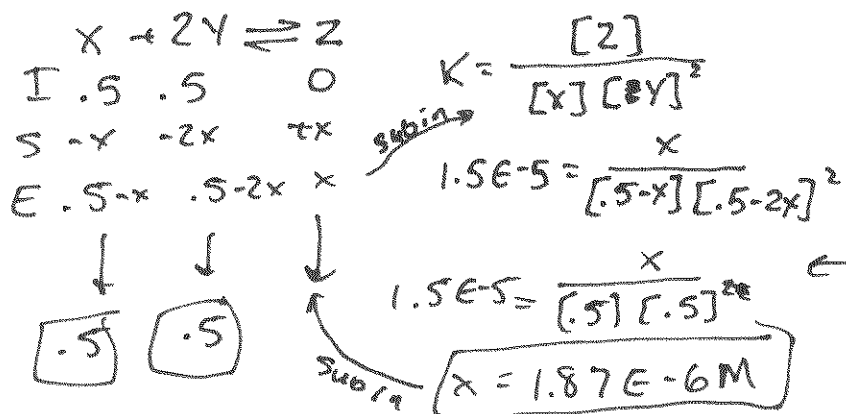 X + 2Y ⇌ Z
I .5 .5 0
S -x -2x +x
E .5-x .5-2x x
.5 .5
sub in
K = [Z] / [X] [Y]²
1.5E-5 = x / [.5-x] [.5-2x]²
1.5E-5 = x / [.5] [.5]²
←
sub in
x = 1.87E-6M